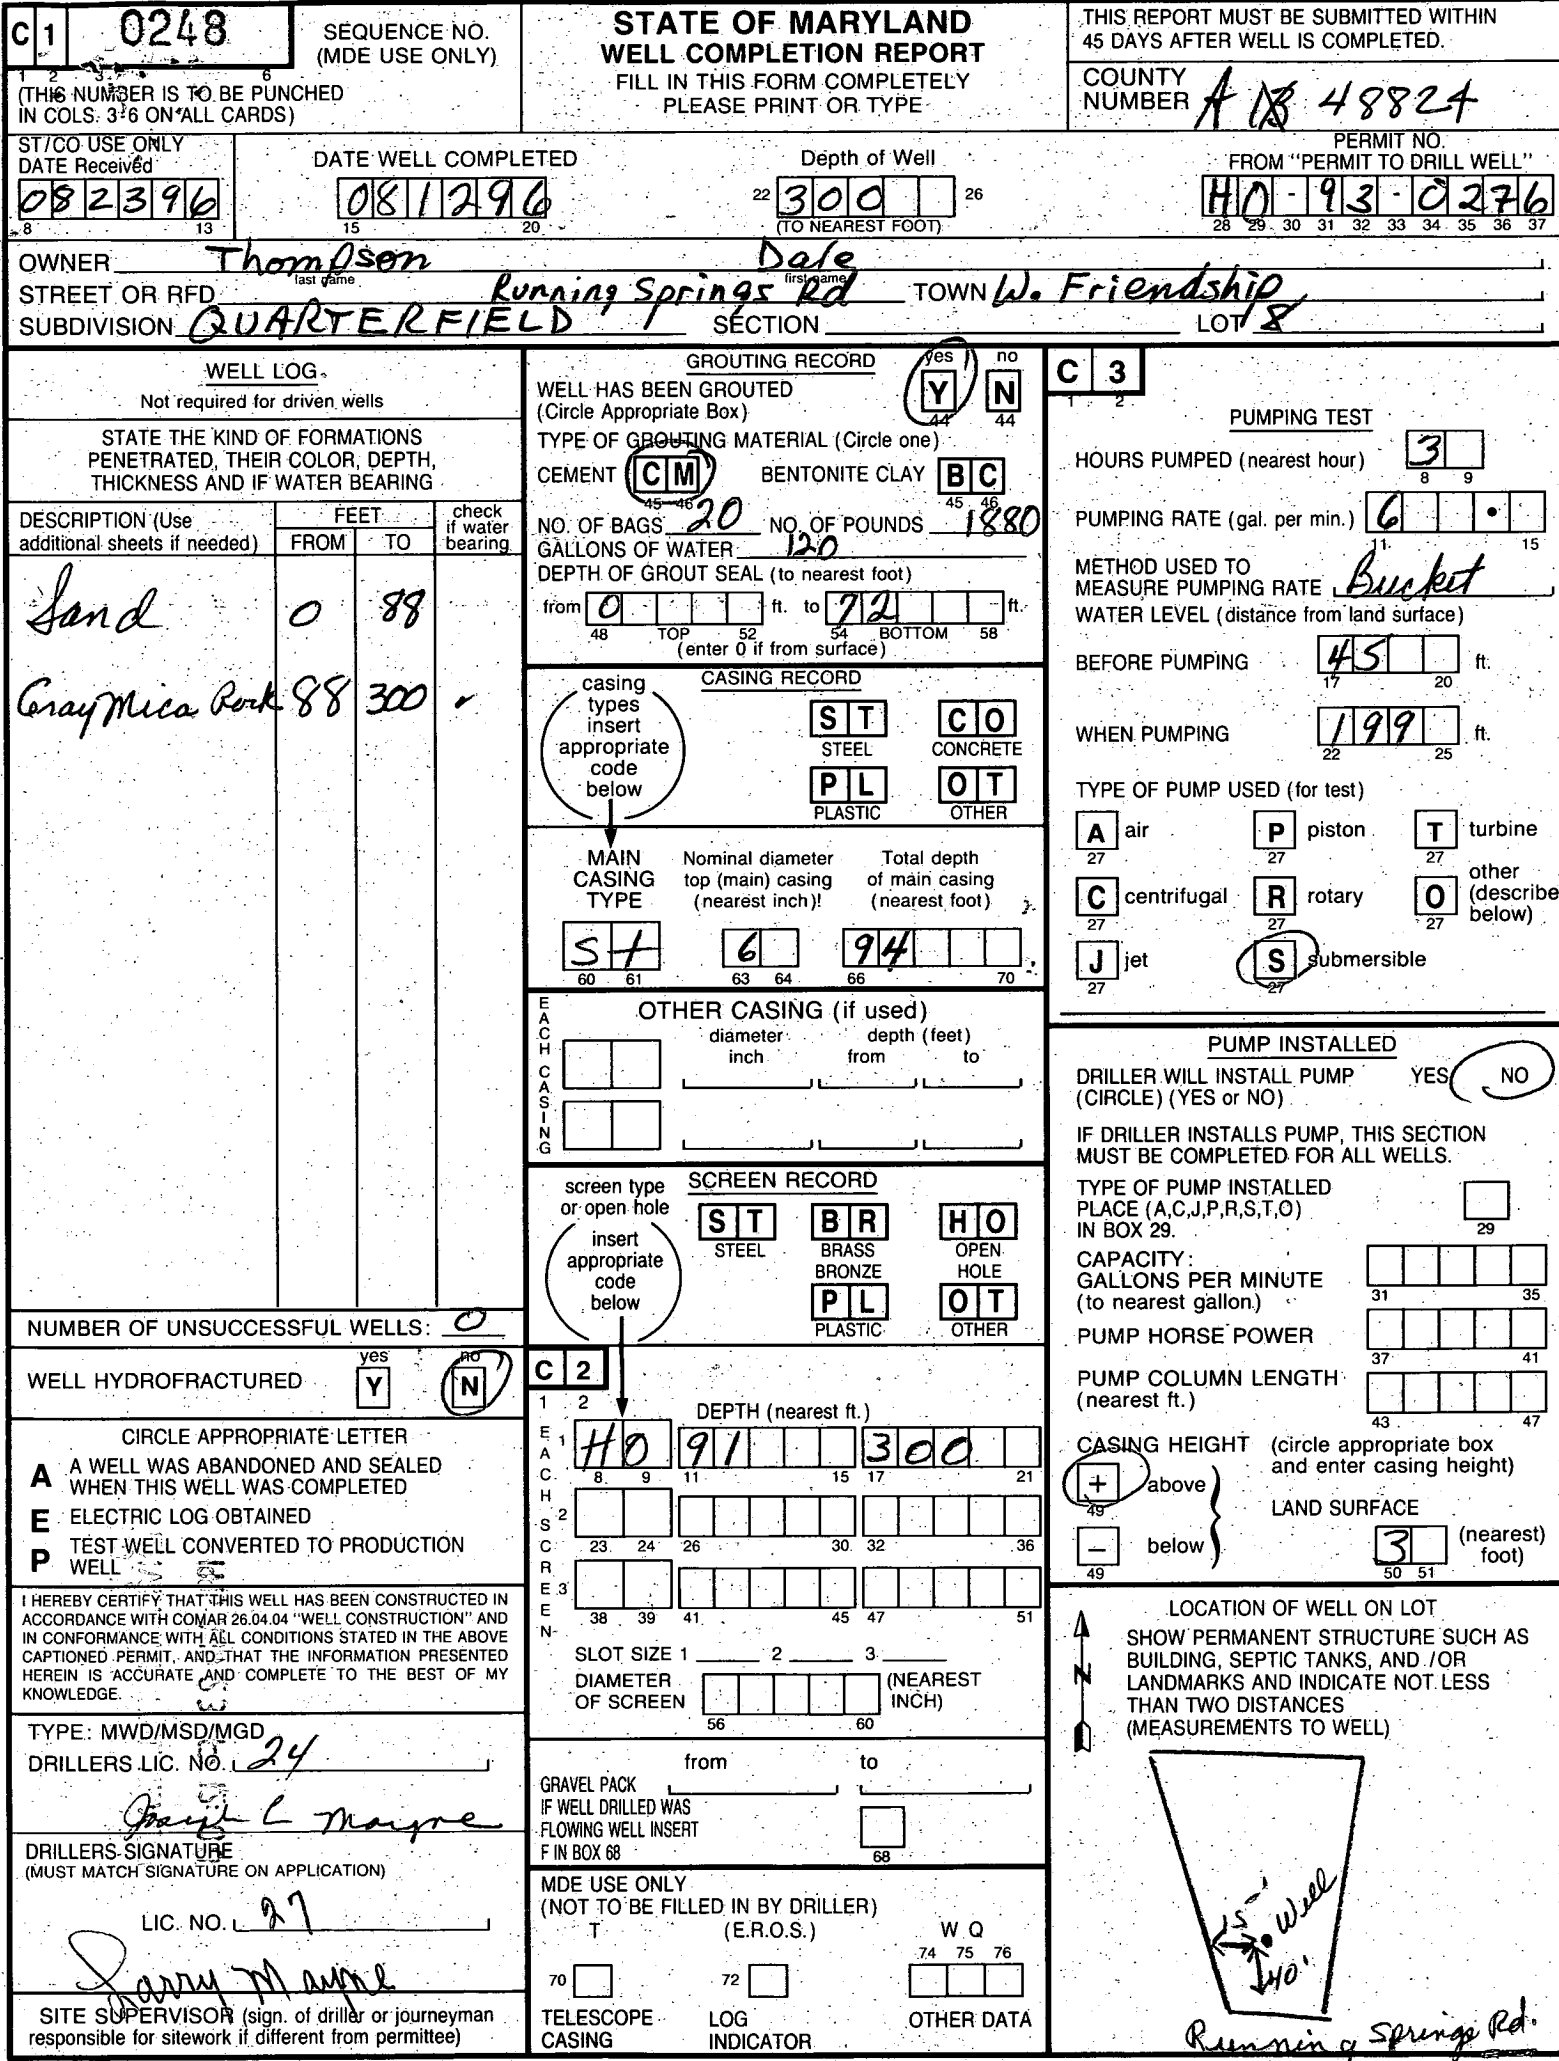 C 1 0248
SEQUENCE NO.
(MDE USE ONLY)
1 2 3 6
(THIS NUMBER IS TO BE PUNCHED
IN COLS. 3-6 ON ALL CARDS)
STATE OF MARYLAND
WELL COMPLETION REPORT
FILL IN THIS FORM COMPLETELY
PLEASE PRINT OR TYPE
THIS REPORT MUST BE SUBMITTED WITHIN
45 DAYS AFTER WELL IS COMPLETED.
COUNTY
NUMBER A 48824
ST/CO USE ONLY
DATE Received
082396
8 13
DATE WELL COMPLETED
081296
15 20
Depth of Well
22 300 26
(TO NEAREST FOOT)
PERMIT NO.
FROM "PERMIT TO DRILL WELL"
HO-93-0276
28 29 30 31 32 33 34 35 36 37
OWNER Thompson Dale
last name first name
STREET OR RFD Running Springs Rd TOWN W. Friendship
SUBDIVISION QUARTERFIELD SECTION LOT 8
WELL LOG
Not required for driven wells
STATE THE KIND OF FORMATIONS
PENETRATED, THEIR COLOR, DEPTH,
THICKNESS AND IF WATER BEARING
DESCRIPTION (Use
additional sheets if needed)
FEET
FROM TO
check
if water
bearing
Sand 0 88
Gray Mica Rock 88 300 ✓
NUMBER OF UNSUCCESSFUL WELLS: 0
yes no
WELL HYDROFRACTURED Y N
CIRCLE APPROPRIATE LETTER
A A WELL WAS ABANDONED AND SEALED
WHEN THIS WELL WAS COMPLETED
E ELECTRIC LOG OBTAINED
P TEST WELL CONVERTED TO PRODUCTION
WELL
I HEREBY CERTIFY THAT THIS WELL HAS BEEN CONSTRUCTED IN
ACCORDANCE WITH COMAR 26.04.04 "WELL CONSTRUCTION" AND
IN CONFORMANCE WITH ALL CONDITIONS STATED IN THE ABOVE
CAPTIONED PERMIT, AND THAT THE INFORMATION PRESENTED
HEREIN IS ACCURATE AND COMPLETE TO THE BEST OF MY
KNOWLEDGE.
TYPE: MWD/MSD/MGD
DRILLERS LIC. NO. 24
Joseph L Mayne
DRILLERS SIGNATURE
(MUST MATCH SIGNATURE ON APPLICATION)
LIC. NO. 27
Larry Mayne
SITE SUPERVISOR (sign. of driller or journeyman
responsible for sitework if different from permittee)
GROUTING RECORD
yes no
WELL HAS BEEN GROUTED Y N
(Circle Appropriate Box) 44 44
TYPE OF GROUTING MATERIAL (Circle one)
CEMENT C M BENTONITE CLAY B C
45 46 45 46
NO. OF BAGS 20 NO. OF POUNDS 1880
GALLONS OF WATER 120
DEPTH OF GROUT SEAL (to nearest foot)
from 0 ft. to 72 ft.
48 TOP 52 54 BOTTOM 58
(enter 0 if from surface)
CASING RECORD
casing
types
insert
appropriate
code
below
S T C O
STEEL CONCRETE
P L O T
PLASTIC OTHER
MAIN
CASING
TYPE
Nominal diameter
top (main) casing
(nearest inch)!
Total depth
of main casing
(nearest foot)
St 6 94
60 61 63 64 66 70
EACH CASING
OTHER CASING (if used)
diameter depth (feet)
inch from to
SCREEN RECORD
screen type
or open hole
insert
appropriate
code
below
S T B R H O
STEEL BRASS OPEN
BRONZE HOLE
P L O T
PLASTIC OTHER
C 2
1 2
DEPTH (nearest ft.)
EACH SCREEN
1 HO 91 300
8 9 11 15 17 21
2
23 24 26 30 32 36
3
38 39 41 45 47 51
SLOT SIZE 1 2 3
DIAMETER
OF SCREEN
(NEAREST
INCH)
56 60
from to
GRAVEL PACK
IF WELL DRILLED WAS
FLOWING WELL INSERT
F IN BOX 68
68
MDE USE ONLY
(NOT TO BE FILLED IN BY DRILLER)
T (E.R.O.S.) W Q
74 75 76
70 72
TELESCOPE
CASING
LOG
INDICATOR
OTHER DATA
C 3
1 2
PUMPING TEST
HOURS PUMPED (nearest hour) 3
8 9
PUMPING RATE (gal. per min.) 6 .
11 15
METHOD USED TO
MEASURE PUMPING RATE Bucket
WATER LEVEL (distance from land surface)
BEFORE PUMPING 45 ft.
17 20
WHEN PUMPING 199 ft.
22 25
TYPE OF PUMP USED (for test)
A air P piston T turbine
27 27 27
C centrifugal R rotary O other
(describe
below)
27 27 27
J jet S submersible
27 27
PUMP INSTALLED
DRILLER WILL INSTALL PUMP YES NO
(CIRCLE) (YES or NO)
IF DRILLER INSTALLS PUMP, THIS SECTION
MUST BE COMPLETED FOR ALL WELLS.
TYPE OF PUMP INSTALLED
PLACE (A,C,J,P,R,S,T,O)
IN BOX 29.
29
CAPACITY:
GALLONS PER MINUTE
(to nearest gallon)
31 35
PUMP HORSE POWER
37 41
PUMP COLUMN LENGTH
(nearest ft.)
43 47
CASING HEIGHT (circle appropriate box
and enter casing height)
+ above
49
LAND SURFACE
− below
49
3 (nearest
foot)
50 51
LOCATION OF WELL ON LOT
SHOW PERMANENT STRUCTURE SUCH AS
BUILDING, SEPTIC TANKS, AND /OR
LANDMARKS AND INDICATE NOT LESS
THAN TWO DISTANCES
(MEASUREMENTS TO WELL)
N
15' Well
40'
Running Springs Rd.